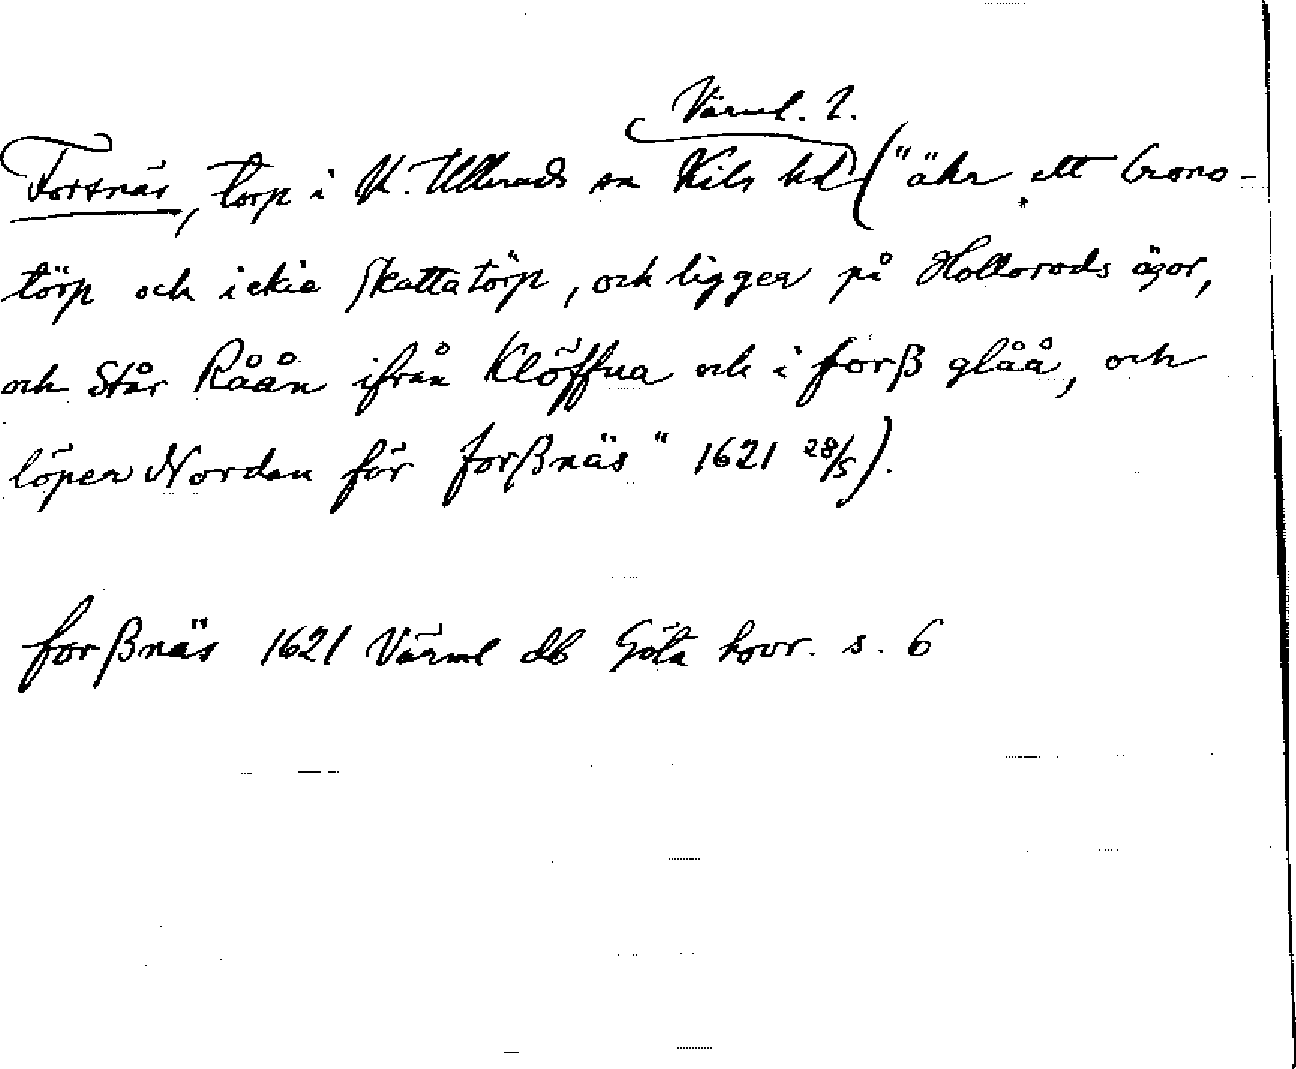 Värml. l.
Forsnäs, torp i N. Ullerads sn Kils hd ("ähr ett Crono-
törp och ickia Skattatörp, och ligger på Hollorods ägor,
och Står Råån ifrån Klöffna och i forß glåå, och
löper Nordan för forßnäs" 1621 28/5).
forßnäs 1621 Värml db Göta hovr. s. 6